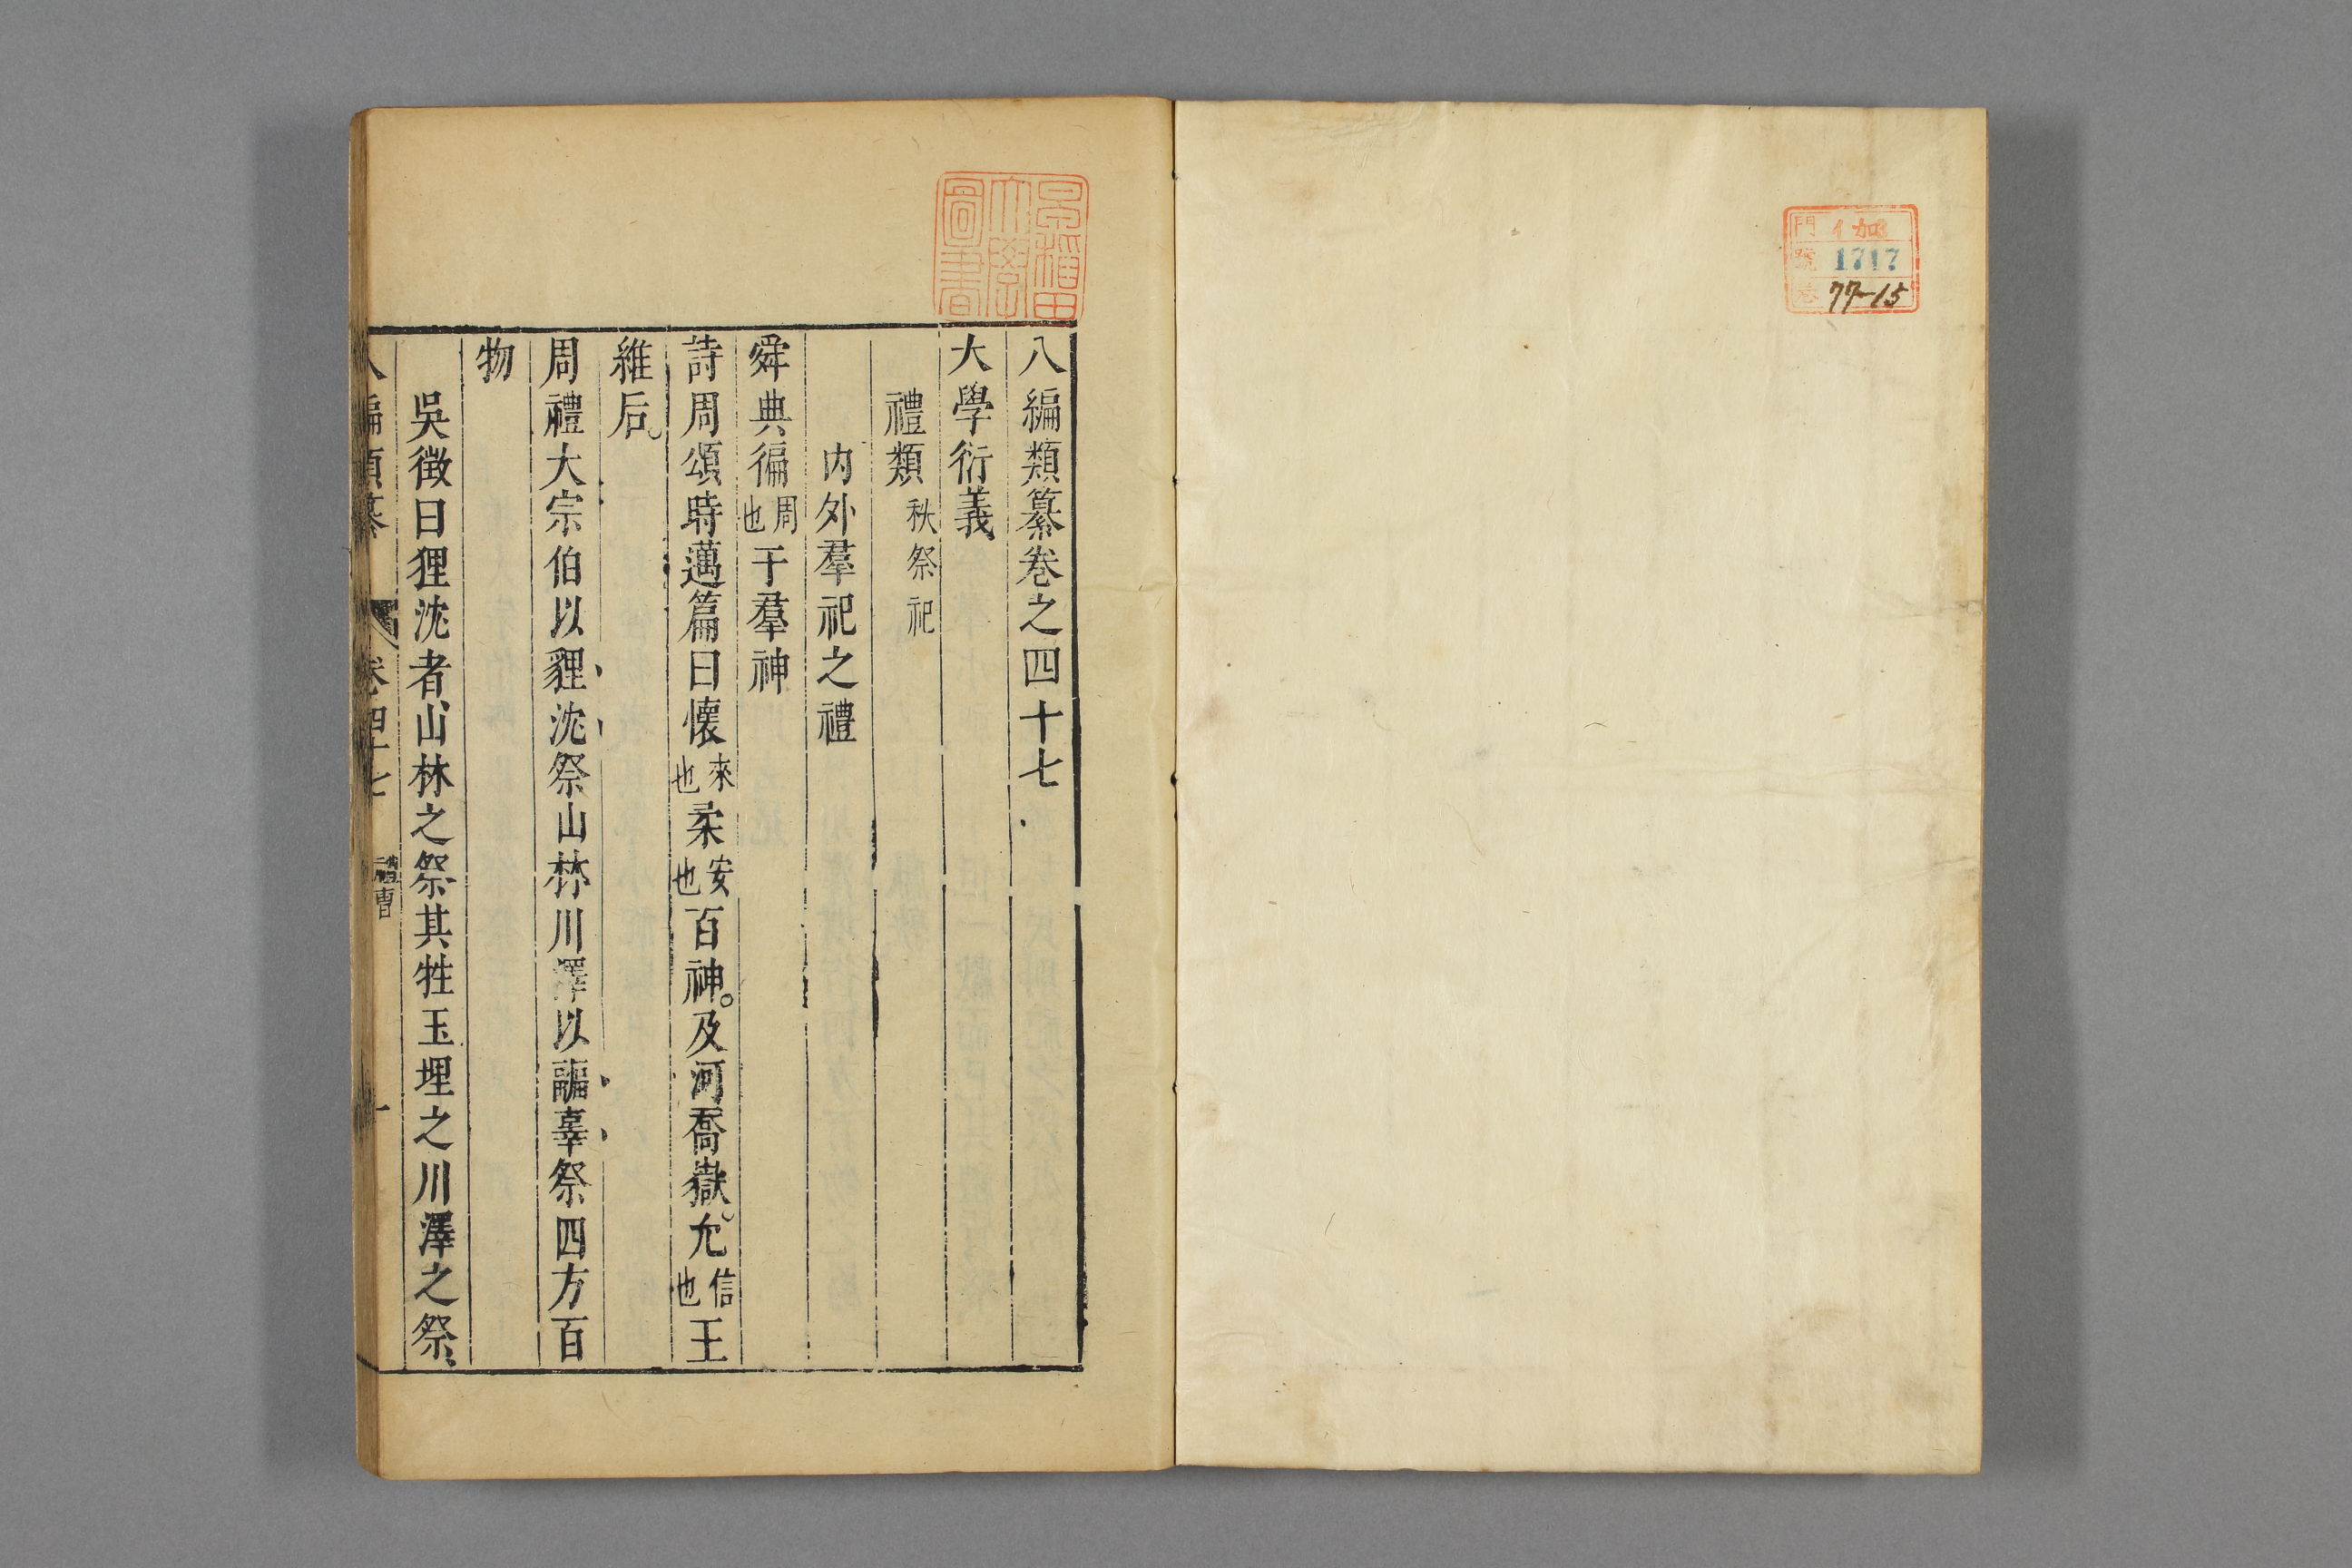 門 イ 加
號 1717
卷 77-15
早稲田大學圖書
八編類纂卷之四十七
大學衍義
禮類 秩祭祀
內外羣祀之禮
舜典徧周也于羣神
詩周頌時邁篇曰懷來也柔安也百神。及河喬嶽。允信也王
維后。
周禮大宗伯以貍沈祭山林川澤以疈辜祭四方百
物
吳徵曰狸沈者山林之祭其牲玉埋之川澤之祭、
八編類纂 卷四十七 禮曹 一